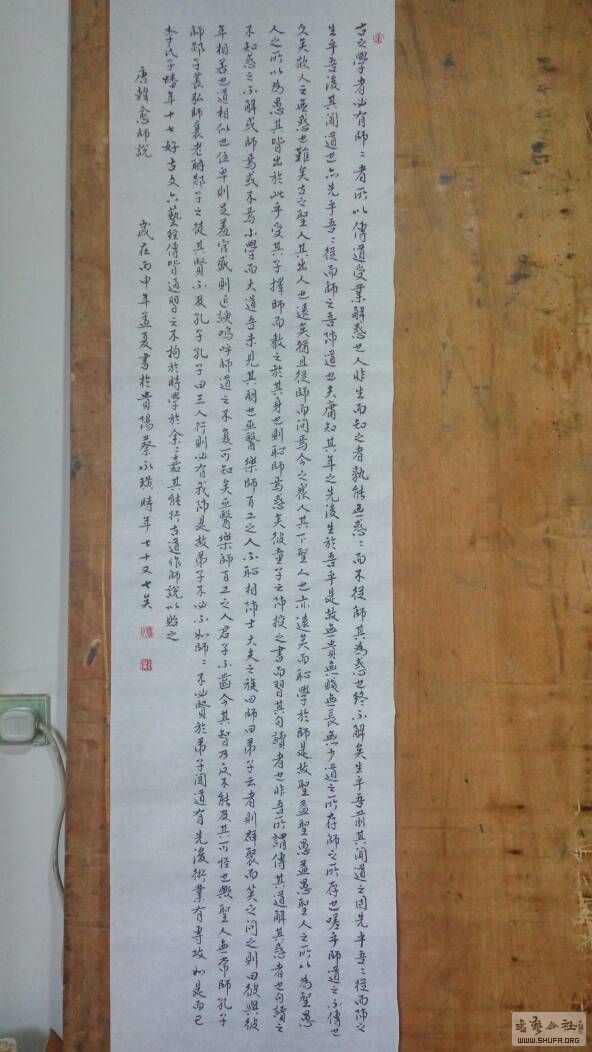 古之學者必有師〻者所以傳道受業解惑也人非生而知之者孰能無惑〻而不從師其為惑也終不解矣生乎吾前其聞道也固先乎吾〻從而師之
生乎吾後其聞道也亦先乎吾〻從而師之吾師道也夫庸知其年之先後生於吾乎是故無貴無賤無長無少道之所存師之所存也嗟乎師道之不傳也
久矣欲人之無惑也難矣古之聖人其出人也遠矣猶且從師而問焉今之眾人其下聖人也亦遠矣而恥學於師是故聖益聖愚益愚聖人之所以為聖愚
人之所以為愚其皆出於此乎愛其子擇師而教之於其身也則恥師焉惑矣彼童子之師授之書而習其句讀者也非吾所謂傳其道解其惑者也句讀之
不知惑之不解或師焉或不焉小學而大遺吾未見其明也巫醫樂師百工之人不恥相師士大夫之族曰師曰弟子云者則群聚而笑之問之則曰彼與彼
年相若也道相似也位卑則足羞官盛則近諛嗚呼師道之不復可知矣巫醫樂師百工之人君子不齒今其智乃反不能及其可怪也歟聖人無常師孔子
師郯子萇弘師襄老聃郯子之徒其賢不及孔子孔子曰三人行則必有我師是故弟子不必不如師〻不必賢於弟子聞道有先後術業有專攻如是而已
李氏子蟠年十七好古文六藝經傳皆通習之不拘於時學於余〻嘉其能行古道作師說以貽之
唐韓愈師說 歲在丙申年孟夏書於貴陽蔡永璜時年七十又七矣
書藝公社
WWW.SHUFA.ORG